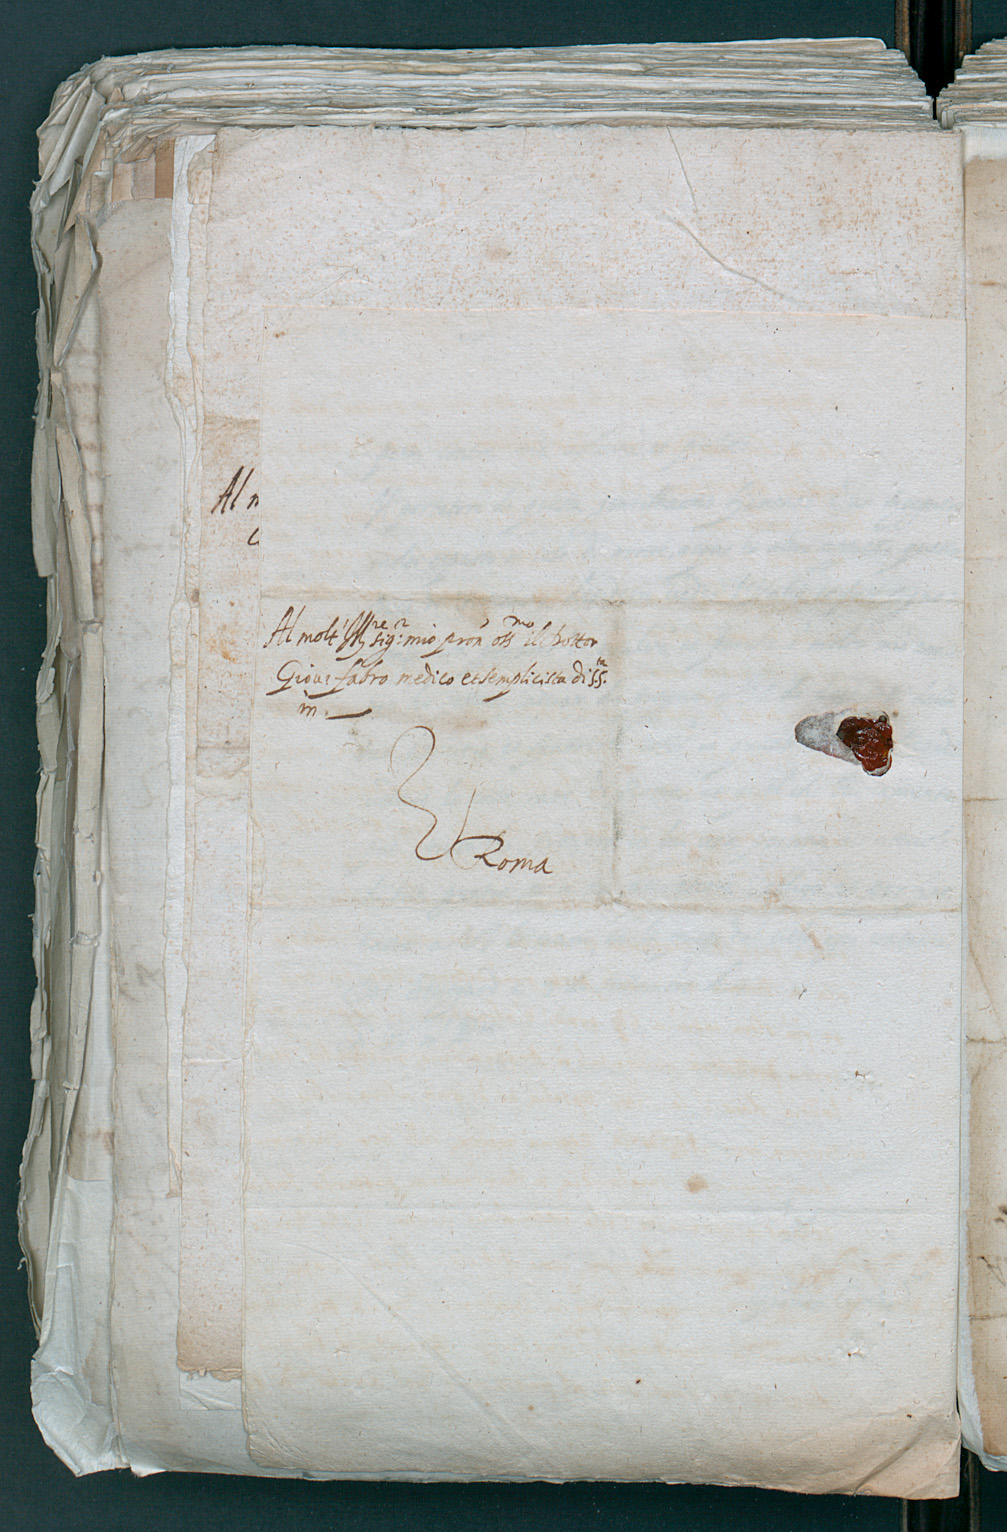 Al m
Al molt' Ill^re sig:^r mio pron' oss^mo il dottor
Giovi fabro medico et semplicista di S. S.^ta
in.
Roma